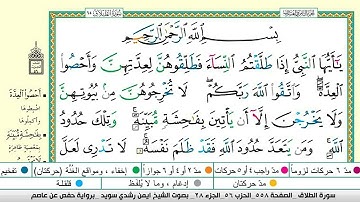 بِسْمِ اللَّهِ الرَّحْمَٰنِ الرَّحِيمِ
يَا أَيُّهَا النَّبِيُّ إِذَا طَلَّقْتُمُ النِّسَاءَ فَطَلِّقُوهُنَّ لِعِدَّتِهِنَّ وَأَحْصُوا
الْعِدَّةَ ۖ وَاتَّقُوا اللَّهَ رَبَّكُمْ ۖ لَا تُخْرِجُوهُنَّ مِن بُيُوتِهِنَّ
وَلَا يَخْرُجْنَ إِلَّا أَن يَأْتِينَ بِفَاحِشَةٍ مُّبَيِّنَةٍ ۚ وَتِلْكَ حُدُودُ
اللَّهِ ۚ وَمَن يَتَعَدَّ حُدُودَ اللَّهِ فَقَدْ ظَلَمَ نَفْسَهُ ۚ لَا تَدْرِي لَعَلَّ
أَحْصُوا الْعِدَّةَ
اضبطوها
بِفَاحِشَةٍ مُّبَيِّنَةٍ
مدّ ٦ حركات لزوماً
مدّ ٢ أو ٤ أو ٦ جوازاً
إخفاء، ومواقع الغُنَّة (حركتان)
تفخيم
مدّ واجب ٤ أو ٥ حركات
مدّ حركتان
إدغام، وما لا يُلفَظ
قلقلة
سورة الطلاق . الصفحة ٥٥٨ . الحزب ٥٦ . الجزء ٢٨ . بصوت الشيخ ايمن رشدي سويد . برواية حفص عن عاصم